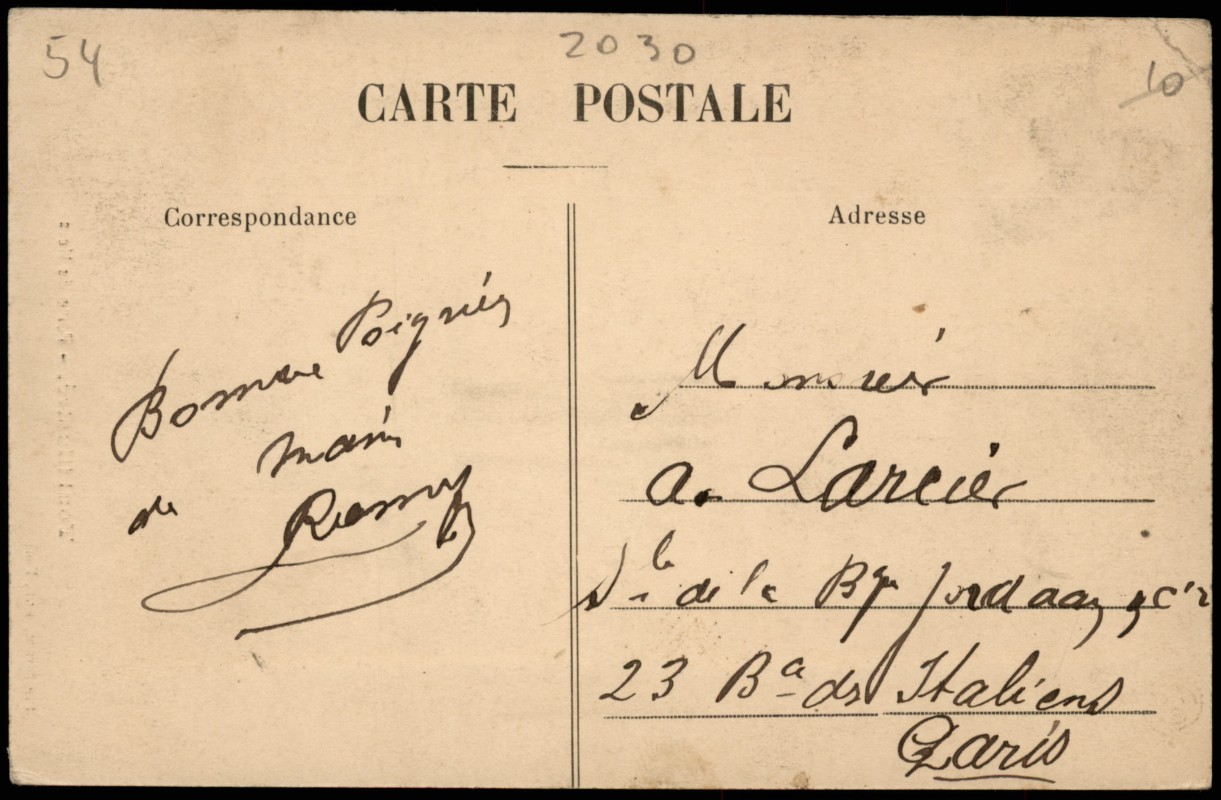 54
2030
10
CARTE POSTALE
Correspondance
Adresse
Bonne Poignée
de main
Remy
Monsieur
A. Larcier
de la Bque Jordaan
23 Bd des Italiens
Paris